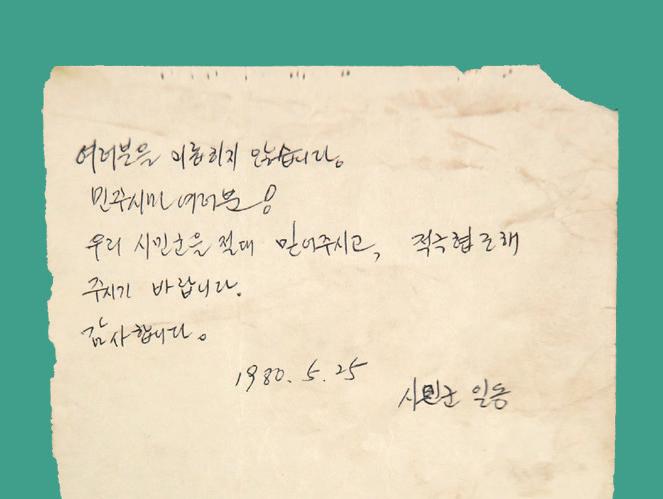 여러분을 괴롭히지 않습니다.
민주시민 여러분!
우리 시민군을 절대 믿어주시고, 적극협조해
주시기 바랍니다.
감사합니다.
1980. 5. 25
시민군 일동